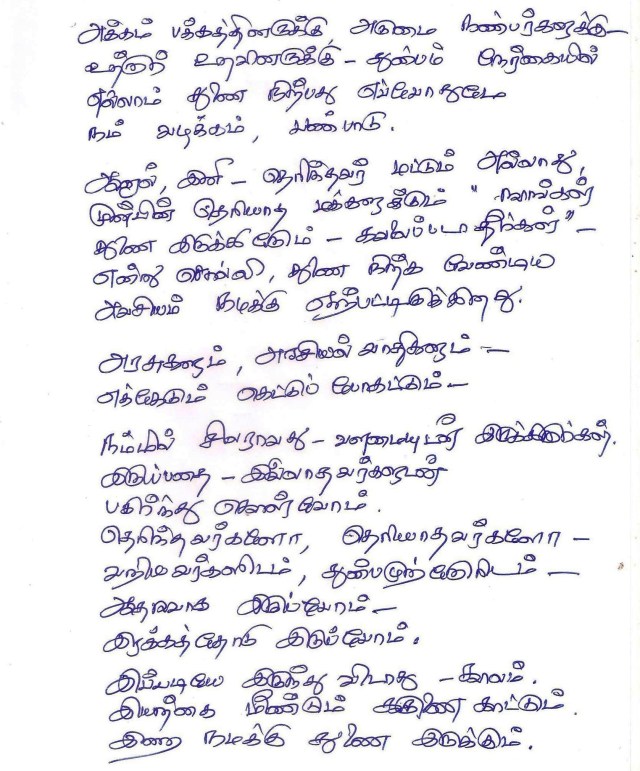 அக்கம் பக்கத்தினருக்கு, அருமை நண்பர்களுக்கு –
உற்றார் உறவினருக்கு – துன்பம் நேர்கையில்
எல்லாம் துணை நிற்பது எப்போதுமே
நம் வழக்கம், பண்பாடு.
ஆனால், இனி – தெரிந்தவர் மட்டும் அல்லாது,
முன்பின் தெரியாத மக்களுக்கும் " நாங்கள்
துணை இருக்கிறோம் – கவலைப்படாதீர்கள்" –
என்று சொல்லி, துணை நிற்க வேண்டிய
அவசியம் நமக்கு ஏற்பட்டிருக்கிறது.
அரசுகளும், அரசியல்வாதிகளும் –
எக்கேடும் கெட்டுப் போகட்டும் –
நம்மில் சிலராவது – வளமையுடன் இருக்கிறார்கள்.
இருப்பதை – இல்லாதவர்களுடன்
பகிர்ந்து கொள்வோம்.
தெரிந்தவர்களோ, தெரியாதவர்களோ –
வறியவர்களிடம், துன்பமுற்றோரிடம் –
ஆதரவாக இருப்போம் –
இரக்கத்தோடு இருப்போம்.
இப்படியே இருந்து விடாது – காலம்.
இயற்கை மீண்டும் கருணை காட்டும்.
இறை நமக்கு துணை இருக்கும்.